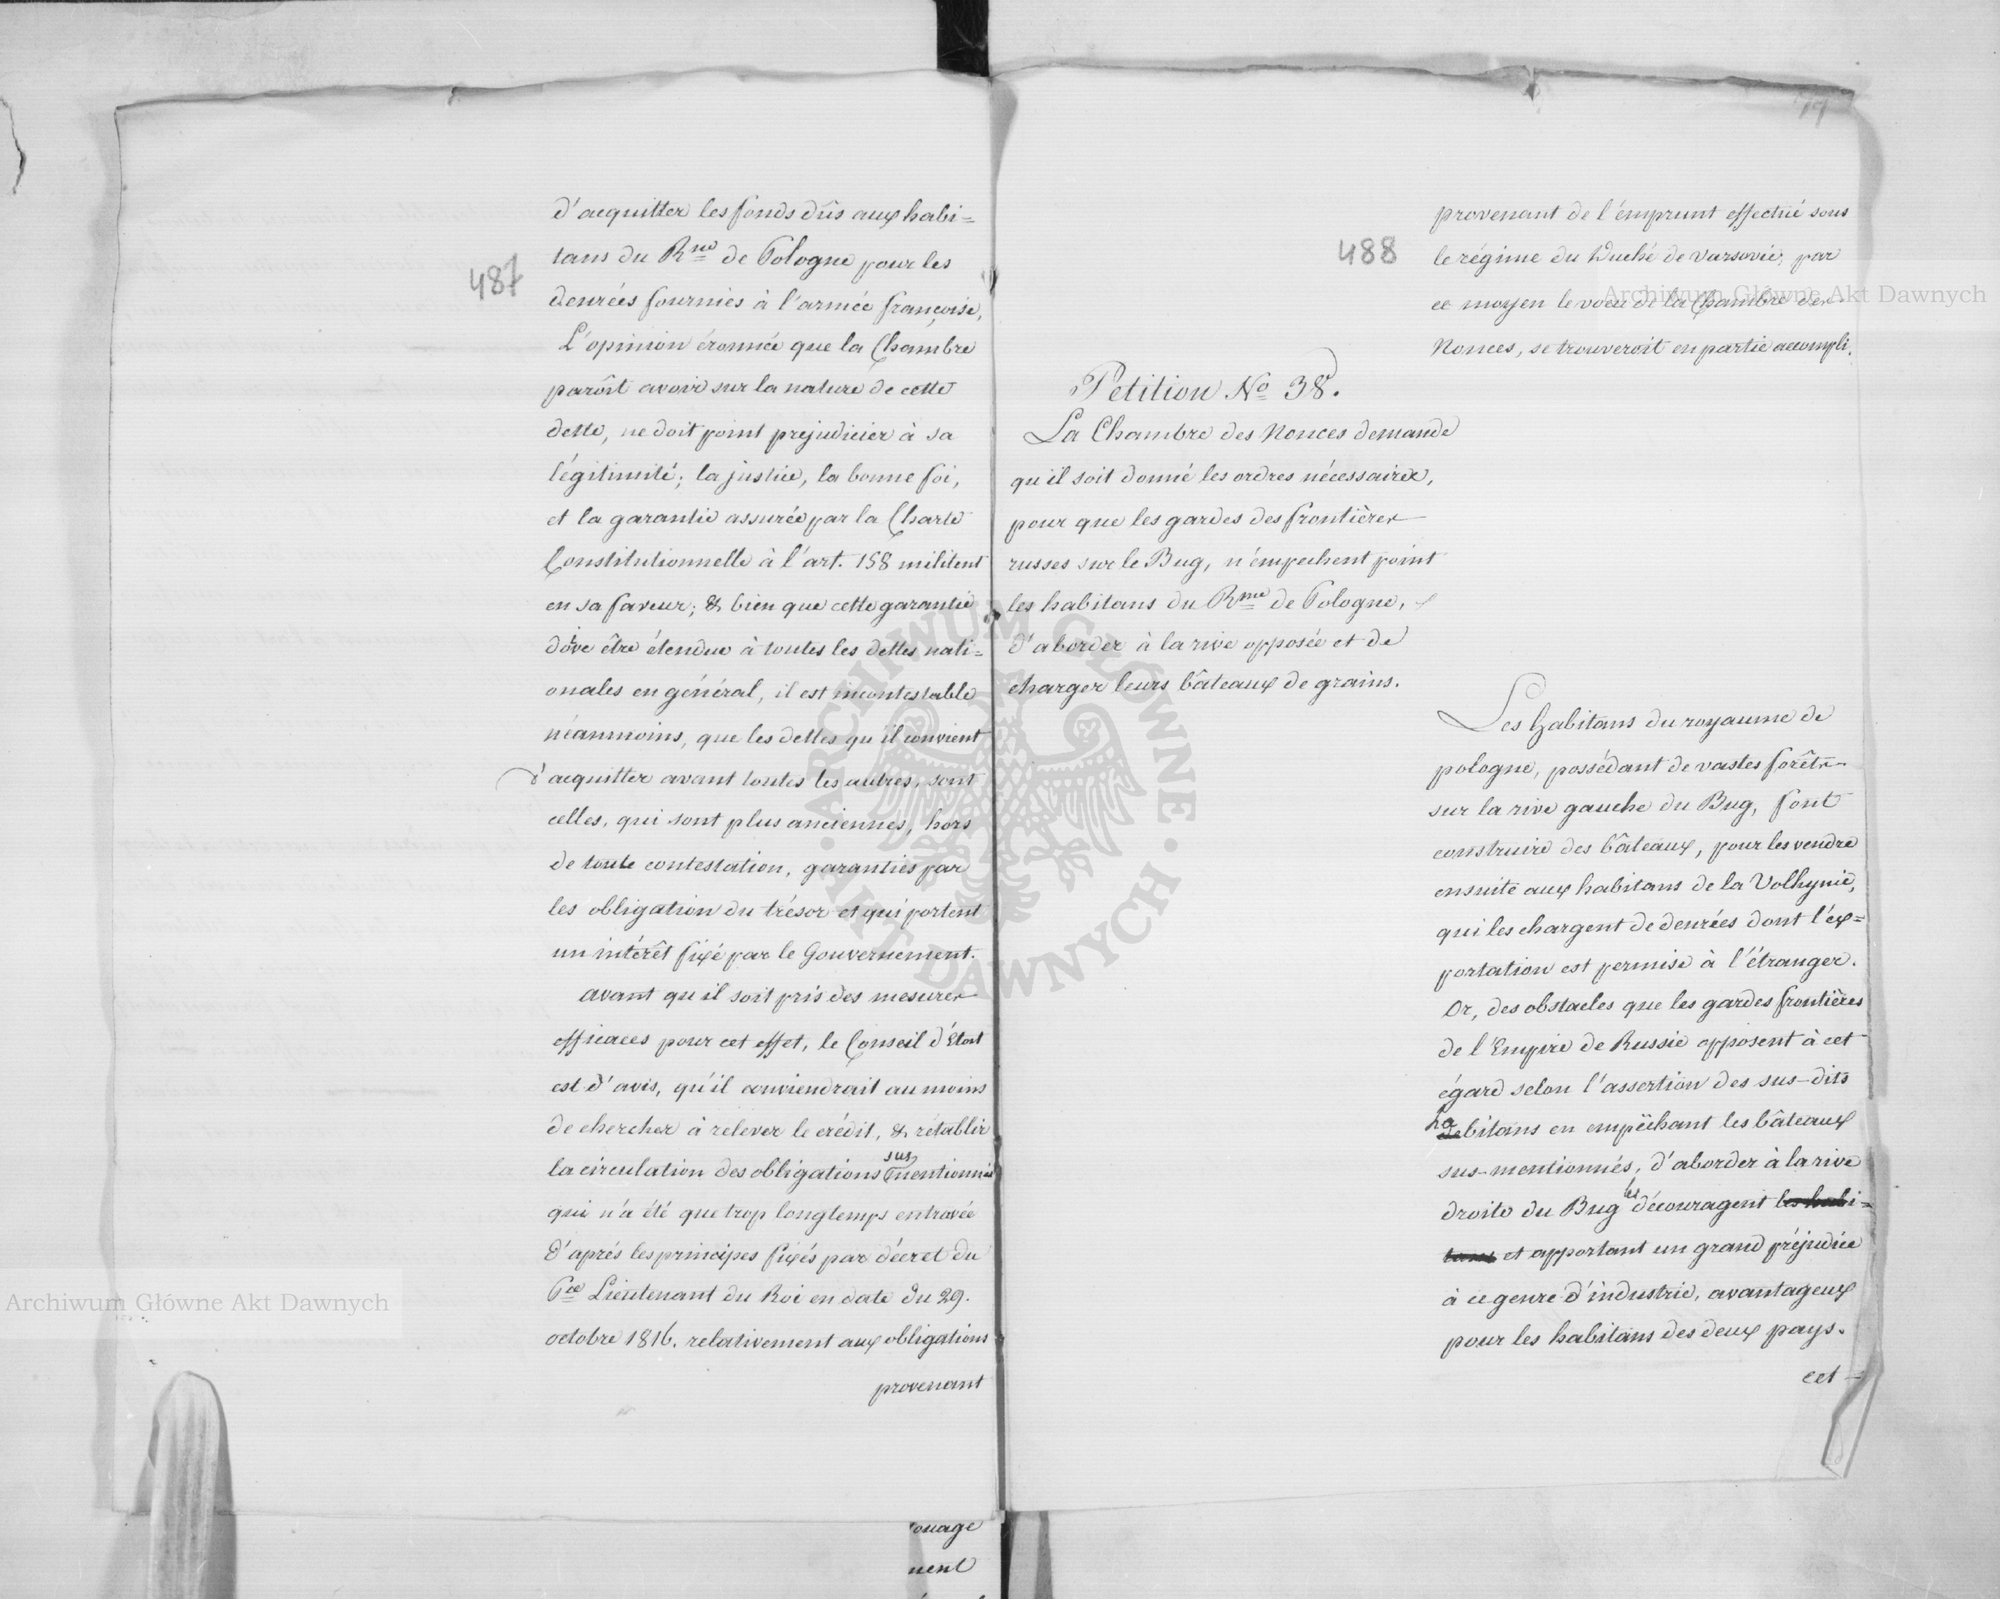 487
d'acquitter les fonds dûs aux habi=
tans du Rme de Pologne pour les
denrées fournies à l'armée françoise,
L'opinion éronnée que la Chambre
paroît avoir sur la nature de cette
dette, ne doit point prejudicier à sa
légitimité; la justice, la bonne foi,
et la garantie assurée par la Charte
Constitutionnelle à l'art. 158 militent
en sa faveur; & bien que cette garantie
doive être étendue à toutes les dettes nati=
onales en général, il est incontestable
néanmoins, que les dettes qu'il convient
d'acquitter avant toutes les autres, sont
celles, qui sont plus anciennes, hors
de toute contestation, garanties par
les obligation du trésor et qui portent
un intérêt fixé par le Gouvernement.
avant qu'il soit pris des mesures
efficaces pour cet effet, le Conseil d'Etat
est d'avis, qu'il conviendrait au moins
de chercher à relever le crédit, & rétablir
la circulation des obligations sus mentionnés
qui n'a été que trop longtemps entravée
d'aprés les principes fixés par décret du
Pce Lieutenant du Roi en date du 29.
octobre 1816. relativement aux obligations
provenant
ouage
nent
488
provenant de l'émprunt effectué sous
le régime du Duché de Varsovie, par
ce moyen le voeu de la Chambre des
Nonces, se trouveroit en partie accompli.
Petition No 38.
La Chambre des Nonces demande
qu'il soit donné les ordres nécessaires,
pour que les gardes des frontières
russes sur le Bug, n'émpechent point
les habitans du Rme de Pologne,
d'aborder à la rive opposée et de
charger leurs bâteaux de grains.
Les habitans du royaume de
pologne, possédant de vastes forêts
sur la rive gauche du Bug, font
construire des bâteaux, pour les vendre
ensuite aux habitans de la Volhynie,
qui les chargent de denrées dont l'ex=
portation est permise à l'étranger.
Or, des obstacles que les gardes frontières
de l'Empire de Russie opposent à cet
égard selon l'assertion des sus-dits
habitans en empêchant les bâteaux
sus-mentionnés, d'aborder à la rive
droite du Bug les découragent les habi=
tans et apportant un grand préjudice
à ce genre d'industrie, avantageux
pour les habitans des deux pays.
cet
Archiwum Główne Akt Dawnych
Archiwum Główne Akt Dawnych
ARCHIWUM GŁÓWNE · AKT DAWNYCH ·